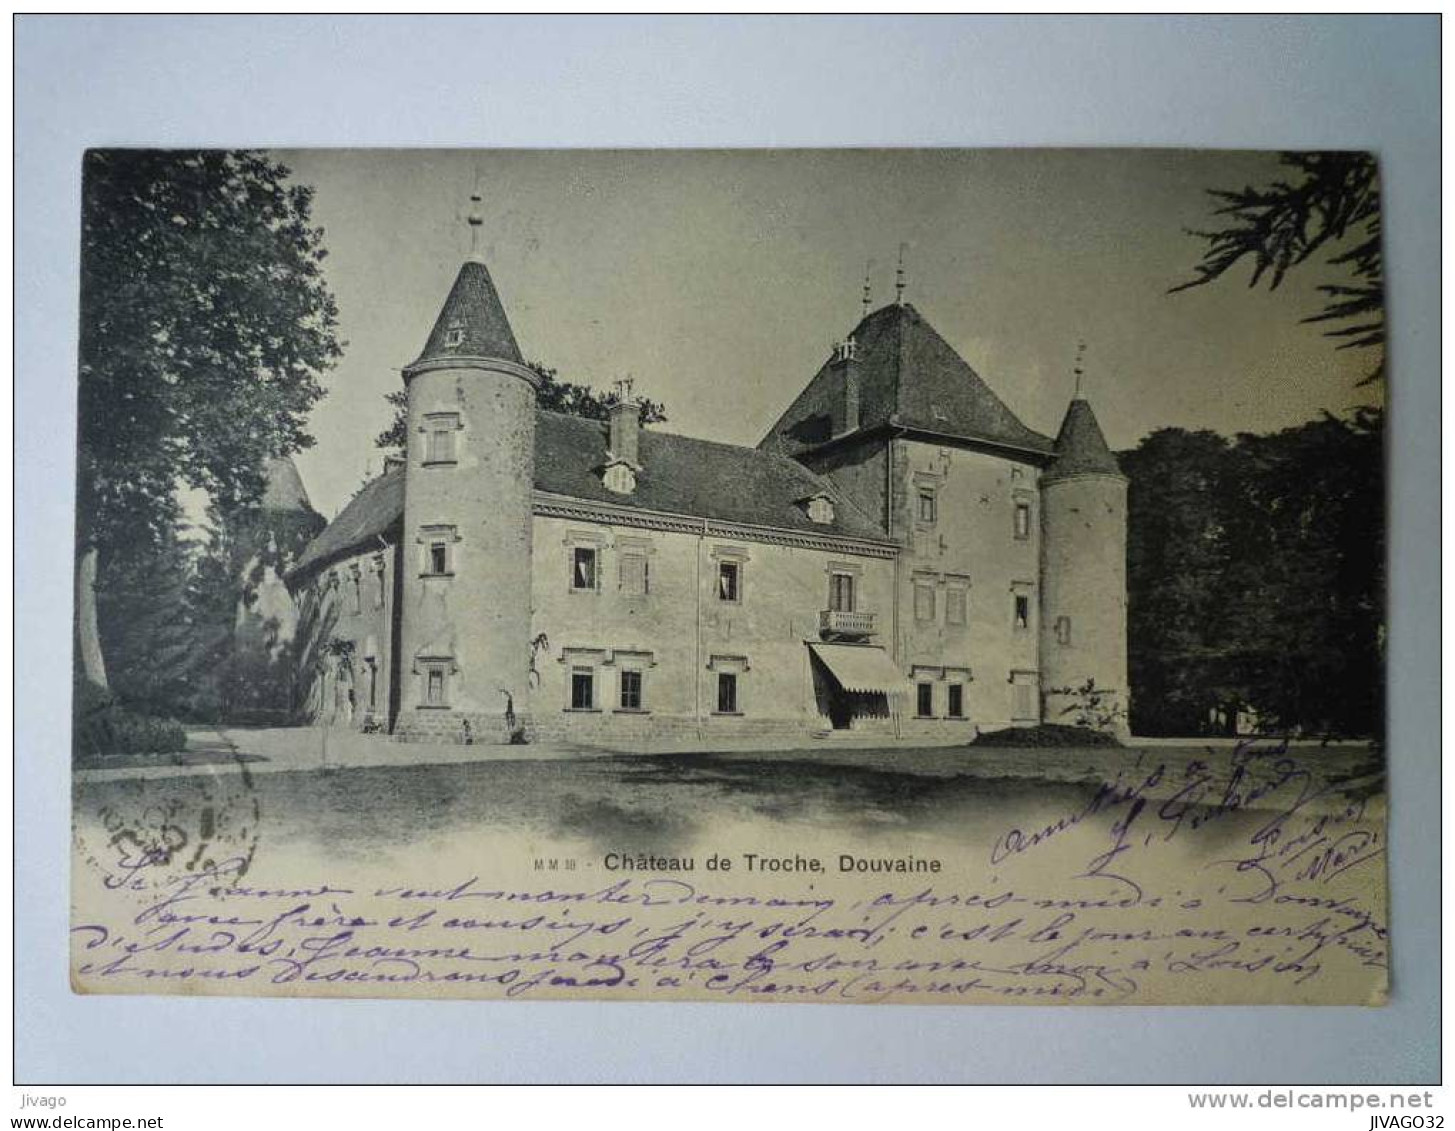 MM 18 - Château de Troche, Douvaine
amitiés à tous
Loisin
Mardi
Si Jeanne veut monter demain, après-midi à Douvaine
avec frère et cousins, j'y serai; c'est le jour au certificat
d'études, Jeanne montera le soir avec moi à Loisin
et nous descendrons jeudi à Chens (après-midi)
www.delcampe.net
jivago
JIVAGO32